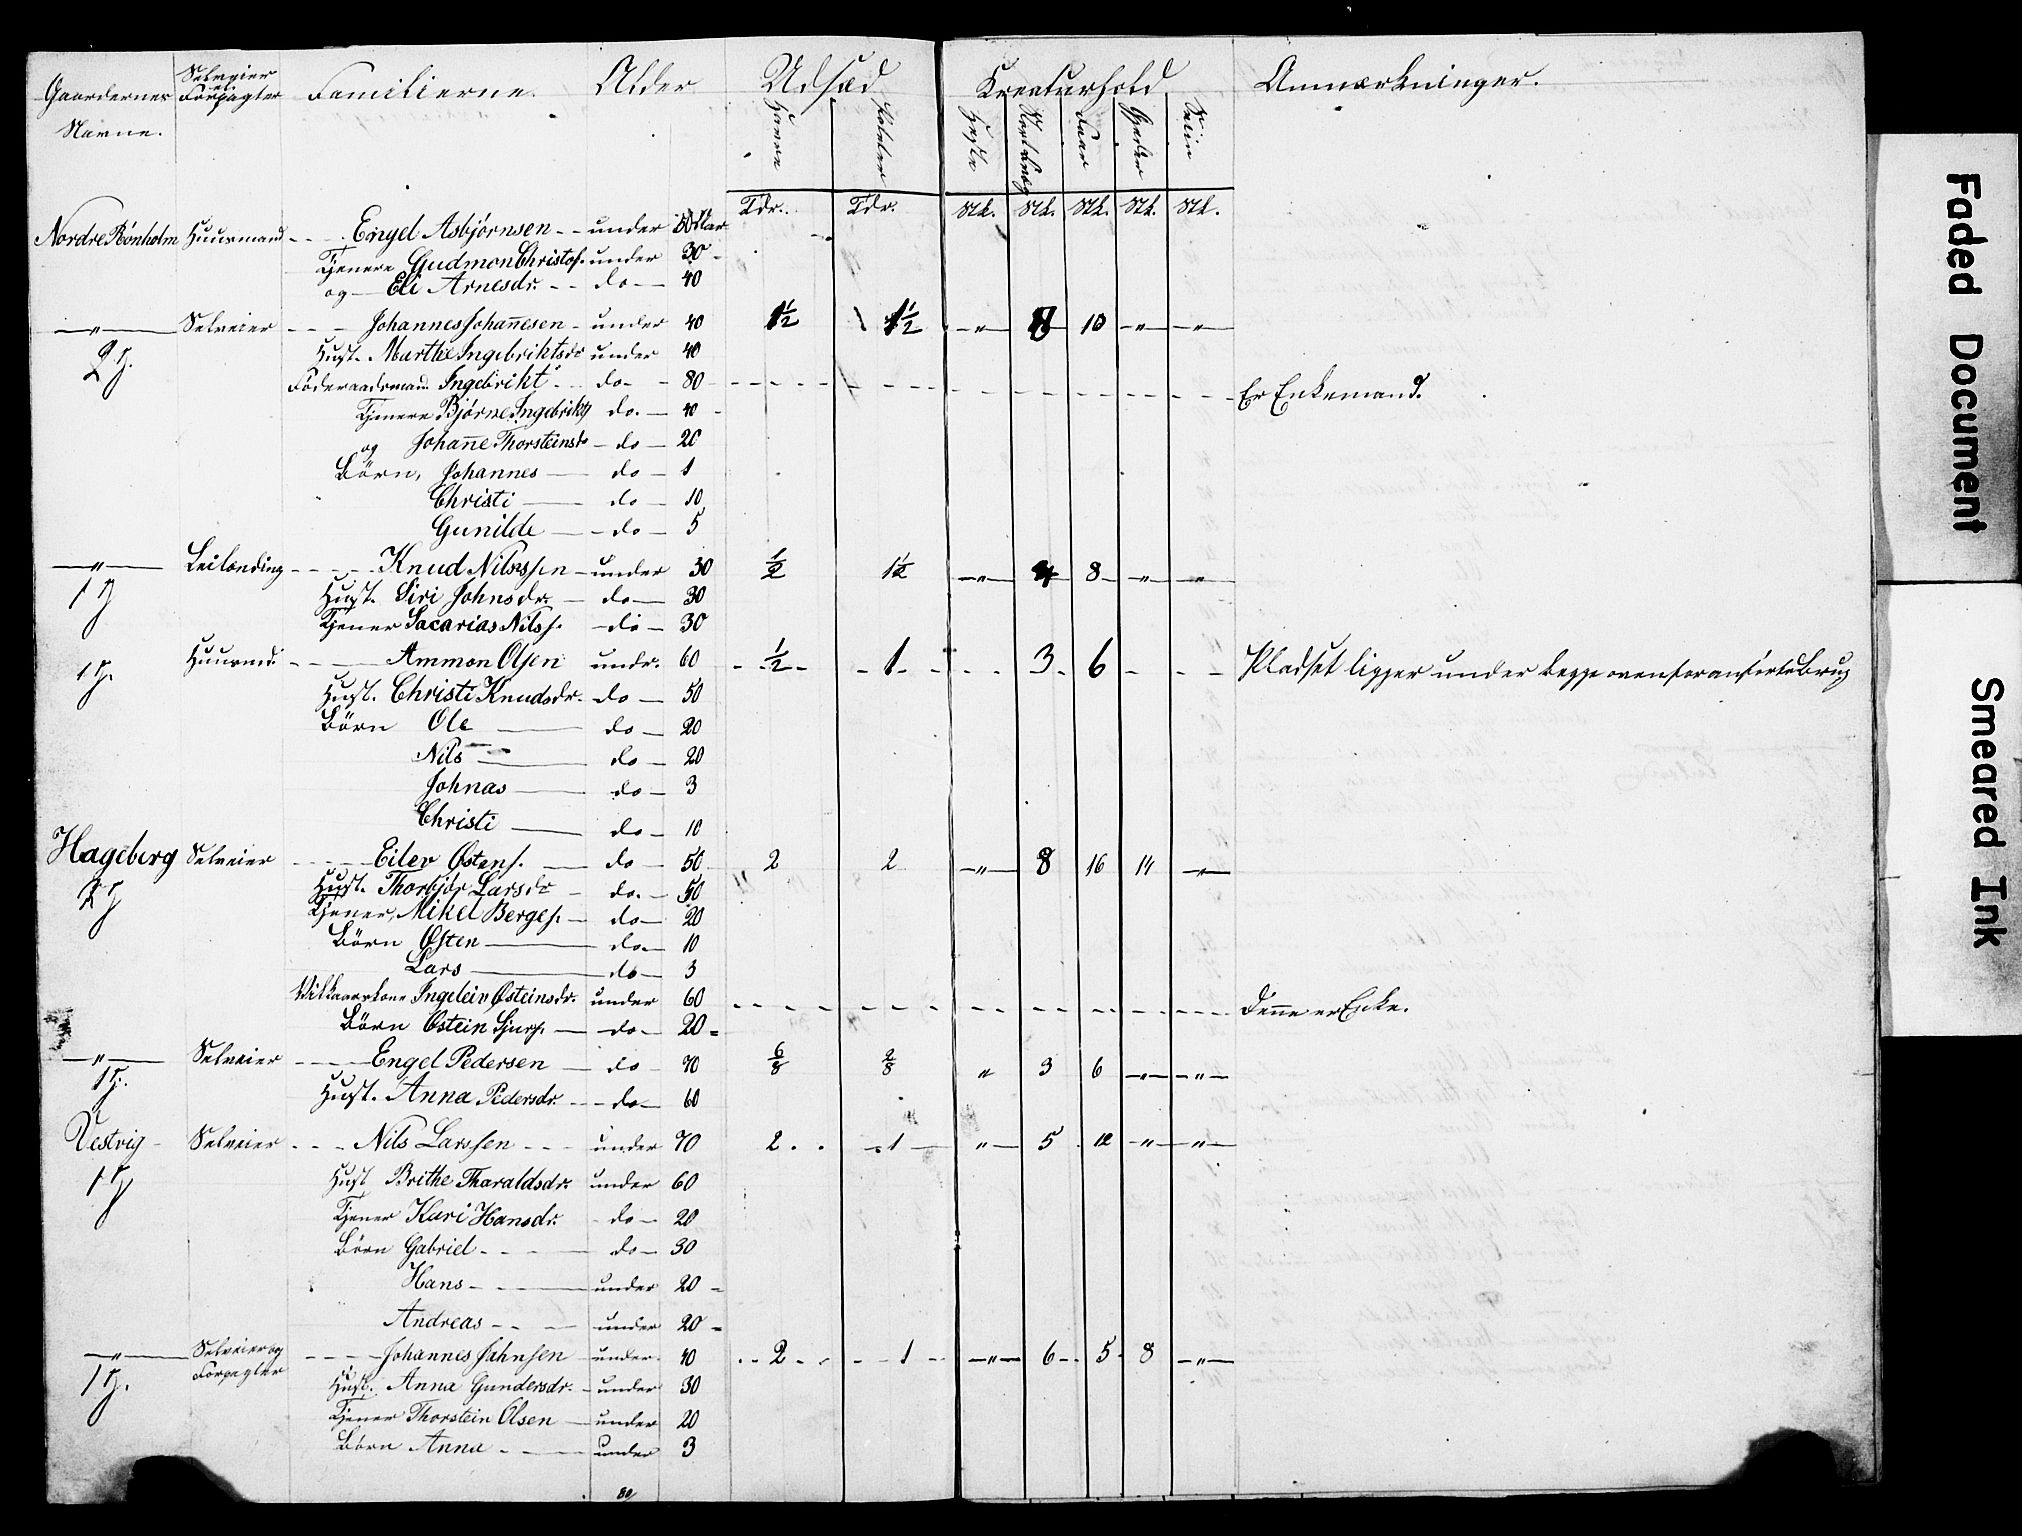 Gaardernes Navne. Selveier el. Forpagter Familierne. Alder Udsæd Kreaturhold Anmærkninger.
Havre Poteter Heste Stort Qvæg Faar Gjeder Sviin
Tdr. Tdr. Stk. Stk. Stk. Stk. Stk.
Nordre Rönholm Huusmand - - - Engel Asbjørnsen - - under 50 Aar
Tjenere Gudmon Christof. under 30 -
og - Eli Arnesdr. - - do - 40
- " - Selveier - - - Johannes Johañesen - under 40 1½ 1½ - " - 8 10 - " - - " -
2 H. Hust. Marthe Ingebriktsdr under 40
Föderaadsmand Ingebrikt - - do - - 80 - - - - - - Er Enkemand.
Tjenere Bjørne Ingebrikts do. - 40 -
og Johañe Thorsteinsdr - do - 20
Börn, Johannes - do - 1
Christi - do - 10
Gunilde - do - 5
- " - Leilending - - - Knud Nilsssen - under 30 ½ 1½ - " - 4 8 - " - - " -
1 H Hust. Siri Johnsdr. - do - 30
Tjener Sacarias Nilss. - do - 30
1 H. Huusmd. - - - Ammon Olsen undr. 60 - - ½ - - 1 - - - - 3 - 6 - - - Pladset ligger under begge ovenforanførte Brug
Hust. Christi Knudsdr. - do - 50
Börn Ole - do - 20
Nils - do - 20
Johnas - do - 3
Christi - do - 10
Hageberg Selveier - - - Eilev Østens. - do - 50 2 2 - " - 8 16 14 - " -
2 H Hust. Thorbjör Larsdr - do. - 50
Tjener, Mikel Berges. - do - 20
Börn Østen - do - 10
Lars - do - 3
Vilkaarskone Ingeleiv Østeinsdr. under 60 - - - - - - Deñe er Enke.
Börn Østein Sjurs. - do - 20 -
- " - Selveier - - - Engel Pedersen - do - 70 6/8 2/8 " 3 6 - " - - " -
1 H. Hust. Anna Pedersdr. - - do - 60
Vestvig - Selveier - - - Nils Larssen - - under 70 2 - - - 1 - " - 5 12 - " - - " -
1 H Hust Brithe Tharaldsdr. under 60
Tjener Kari Hansdr. - do - 20
Börn Gabriel - - - do - 30
Hans - - - under 20 -
Andreas - - - under 20 -
- " - Selveier og Forpagter - - - Johannes Jahnsen - under 40 - - 2 - - - 1 - - " - 6 - - 5 - 8 - " -
1 H. Hust. Anna Gundersdr. - under 30
Tjener Thorstein Olsen - under 20
Börn Anna - - - under 3
80
Faded Document
Smeared Ink